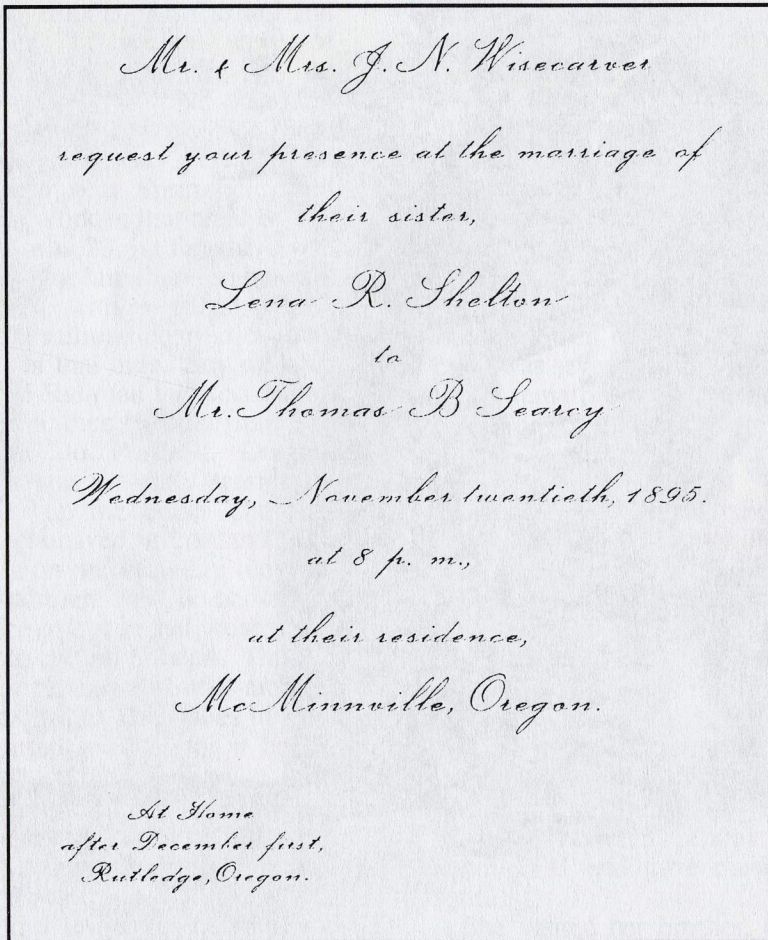 Mr. & Mrs. J. N. Wisecarver
request your presence at the marriage of
their sister,
Lena R. Shelton
to
Mr. Thomas B Searcy
Wednesday, November twentieth, 1895.
at 8 p. m.,
at their residence,
McMinnville, Oregon.
At Home
after December first,
Rutledge, Oregon.